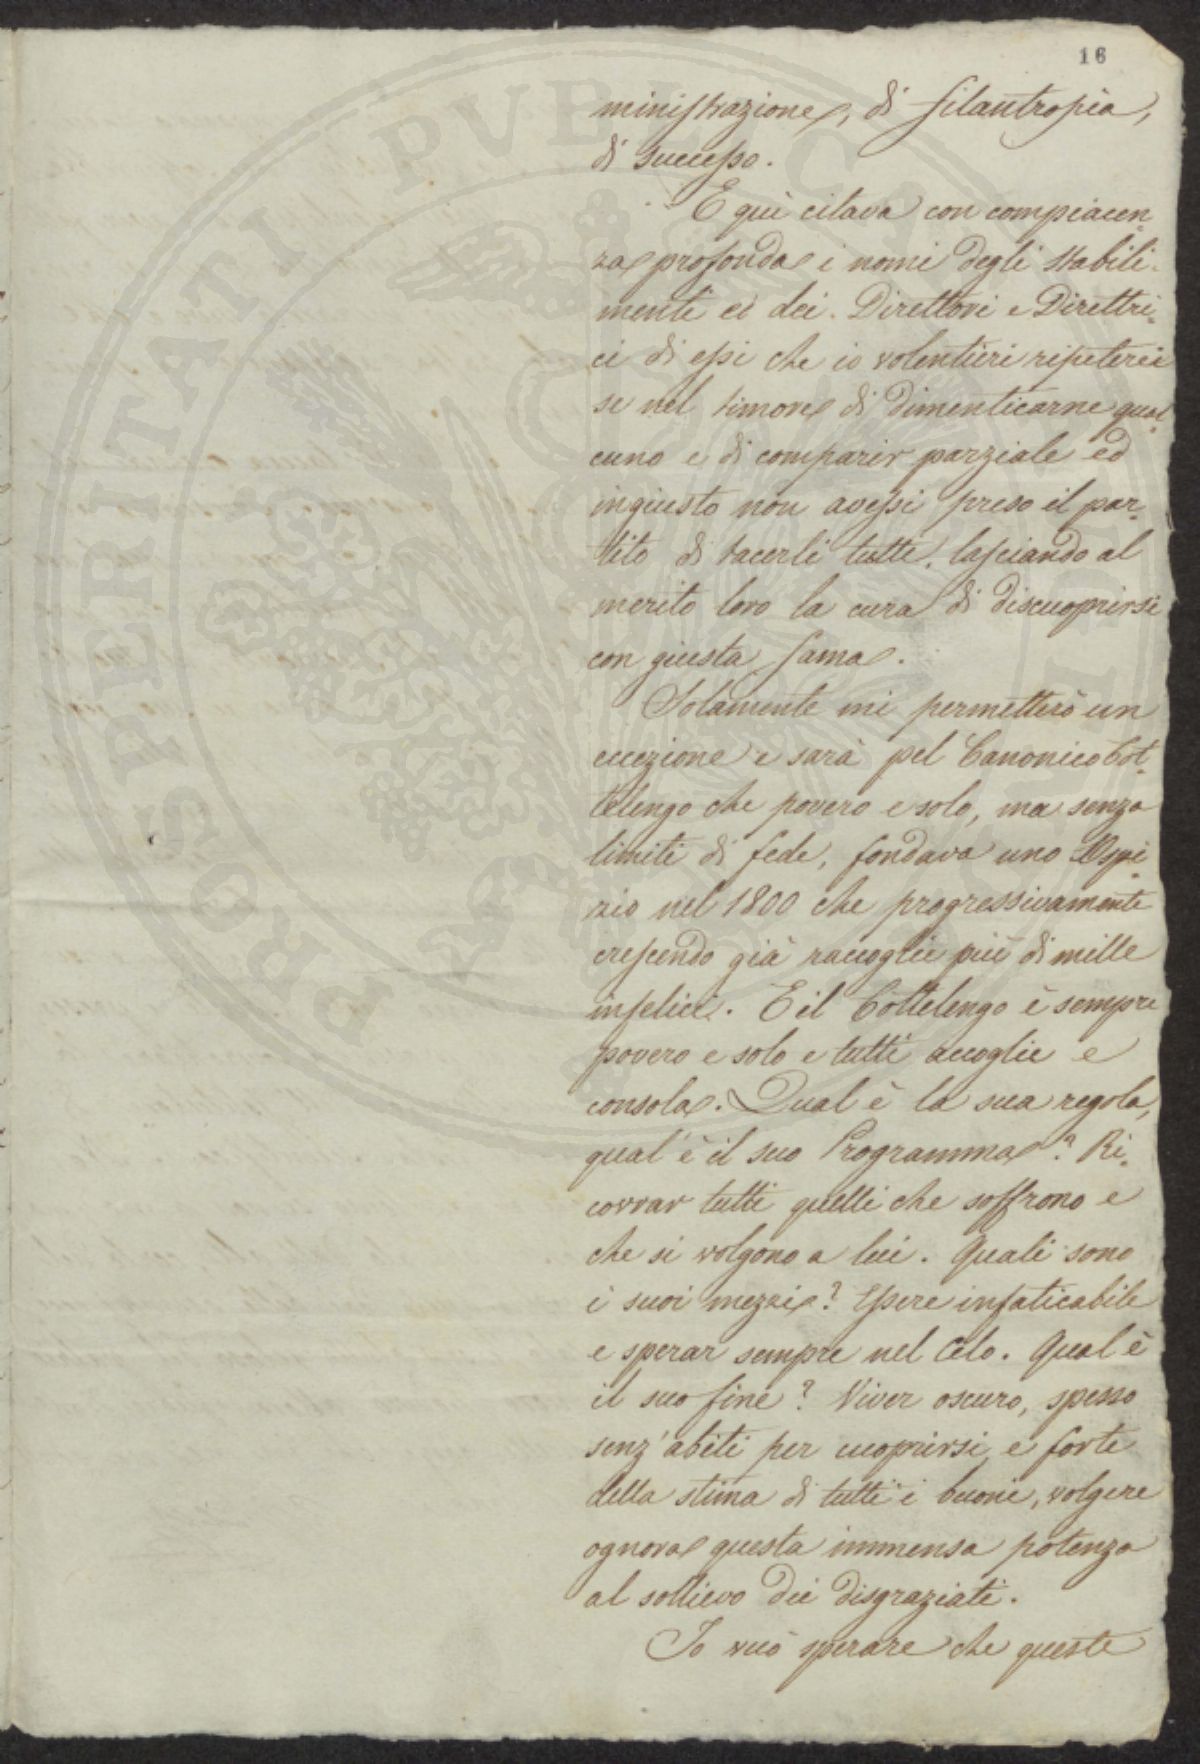 16
ministrazione, di filantropia,
di successo.
E quì citava con compiacen-
za profonda i nomi degli stabili-
menti e dei Direttori e Direttri-
ci di essi che io volentieri ripeterei
se nel timore di dimenticarne qual-
cuno e di comparir parziale ed
ingiusto non avessi preso il par-
tito di tacerli tutti, lasciando al
merito loro la cura di discuoprirsi
con giusta fama.
Solamente mi permetterò un
eccezione e sarà pel Canonico Cot-
telengo che povero e solo, ma senza
limiti di fede, fondava uno Ospi-
zio nel 1800 che progressivamente
crescendo già raccoglie più di mille
infelici. E il Cottelengo è sempre
povero e solo e tutti accoglie e
consola. Qual è la sua regola,
qual'è il suo Programma? Ri-
covrar tutti quelli che soffrono e
che si volgono a lui. Quali sono
i suoi mezzi? Essere infaticabile
e sperar sempre nel Celo. Qual è
il suo fine? Viver oscuro, spesso
senz'abiti per cuoprirsi, e forte
della stima di tutti i buoni, volgere
ognora questa immensa potenza
al sollievo dei disgraziati.
Io vuò sperare che queste
PROSPERITATI PVBLICAE